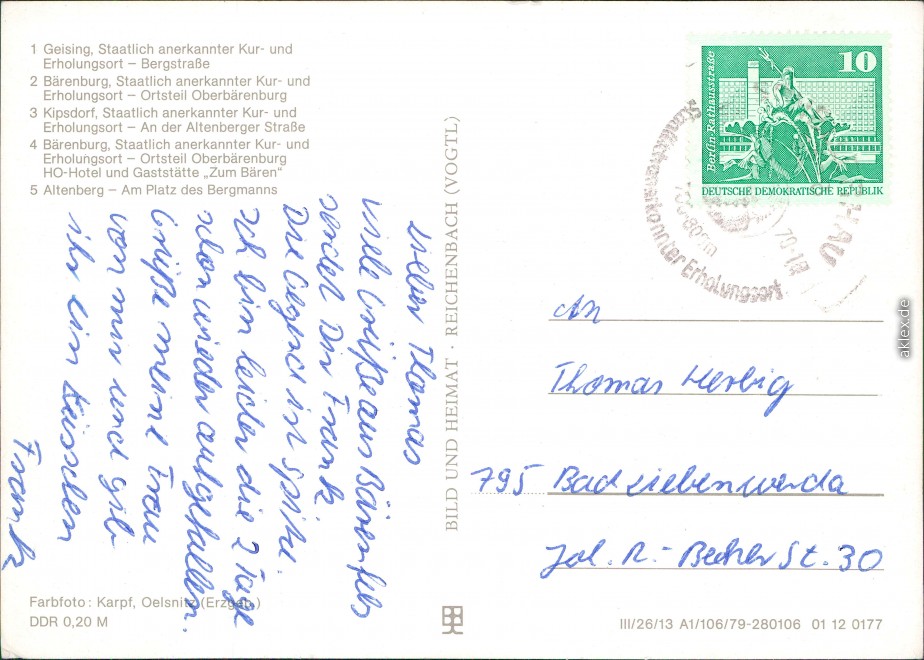 1 Geising, Staatlich anerkannter Kur- und
Erholungsort – Bergstraße
2 Bärenburg, Staatlich anerkannter Kur- und
Erholungsort – Ortsteil Oberbärenburg
3 Kipsdorf, Staatlich anerkannter Kur- und
Erholungsort – An der Altenberger Straße
4 Bärenburg, Staatlich anerkannter Kur- und
Erholungsort – Ortsteil Oberbärenburg
HO-Hotel und Gaststätte „Zum Bären"
5 Altenberg – Am Platz des Bergmanns
Lieber Thomas
viele Grüße aus Bärenfels
sendet Dir Frank
Die Gegend ist spitze.
Ich bin leider die 2 Tage
schon wieder aufgefallen.
Grüße meine Frau
von mir und gib
ihr ein Küsschen
Frank
Farbfoto: Karpf, Oelsnitz (Erzgeb.)
DDR 0,20 M
BILD UND HEIMAT · REICHENBACH (VOGTL)
10
Berlin·Rathausstraße
DEUTSCHE DEMOKRATISCHE REPUBLIK
Staatlich anerkannter Erholungsort
700-800m
An
Thomas Herbig
795 Bad Liebenwerda
Joh. R.- Becher St. 30
III/26/13 A1/106/79-280106 01 12 0177
aklex.de